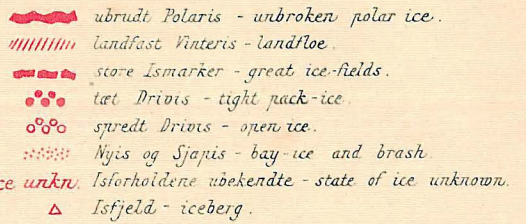 ubrudt Polaris - unbroken polar ice.
landfast Vinteris - landfloe.
store Ismarker - great ice-fields.
tæt Drivis - tight pack-ice.
spredt Drivis - open ice.
Nyis og Sjapis - bay-ice and brash
ce unkn. Isforholdene ubekendte - state of ice unknown.
Isfjeld - iceberg.